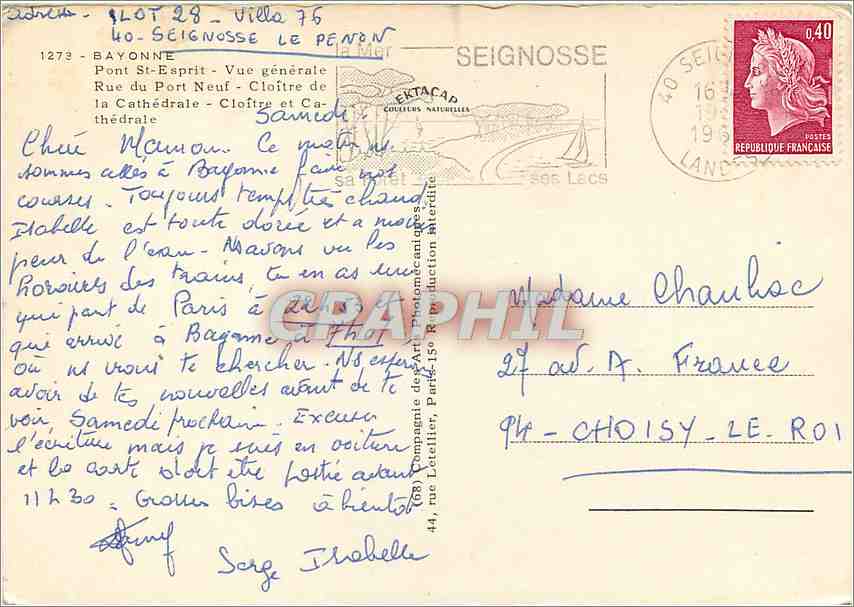 adresse ILOT 28 - Villa 76
40 - SEIGNOSSE LE PENON
1273 - BAYONNE
Pont St-Esprit - Vue générale
Rue du Port Neuf - Cloître de
la Cathédrale - Cloître et Ca-
thédrale
la Mer
SEIGNOSSE
EKTACAP
COULEURS NATURELLES
sa forêt
ses Lacs
40 SEIG
16
19
LANDES
0,40
POSTES
REPUBLIQUE FRANÇAISE
Samedi
Chère Maman. Ce matin ns
sommes allés à Bayonne faire nos
courses. Toujours temps très chaud
Isabelle est toute dorée et a moins
peur de l'eau - Ns avons vu les
horaires des trains, tu en as un
qui part de Paris à
qui arrive à Bayonne à 7h01
où ns irons te chercher. Ns espérons
avoir de tes nouvelles avant de te
voir, Samedi prochain. Excuse
l'écriture mais je suis en voiture
et la carte doit être postée avant
11h30. Grosses bises à bientôt
Serge Isabelle
(68) Compagnie des Arts Photomécaniques
44, rue Letellier, Paris-15e Reproduction interdite
CRAPHIL
Madame Chaulhac
27 av. A. France
94 - CHOISY - LE - ROI